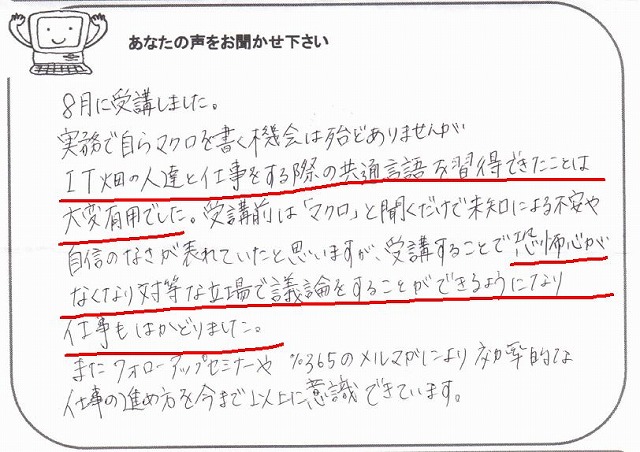 あなたの声をお聞かせ下さい
8月に受講しました。
実務で自らマクロを書く機会は殆どありませんが
IT畑の人達と仕事をする際の共通言語を習得できたことは
大変有用でした。受講前は「マクロ」と聞くだけで未知による不安や
自信のなさが表れていたと思いますが、受講することで恐怖心が
なくなり対等な立場で議論をすることができるようになり
仕事もはかどりました。
またフォローアップセミナーや %365のメルマガにより効率的な
仕事の進め方を今まで以上に意識できています。